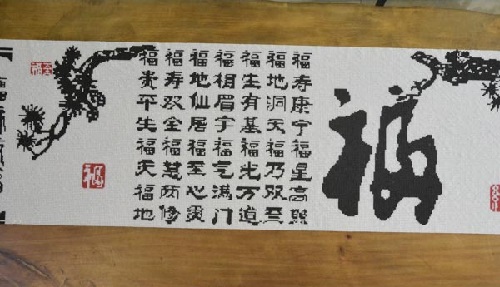 福
福寿康宁福星高照
福地洞天福乃双至
福生有基福光万道
福相眉宇福气满门
福地仙居福至心灵
福寿双全福慧两修
福贵平生福天福地